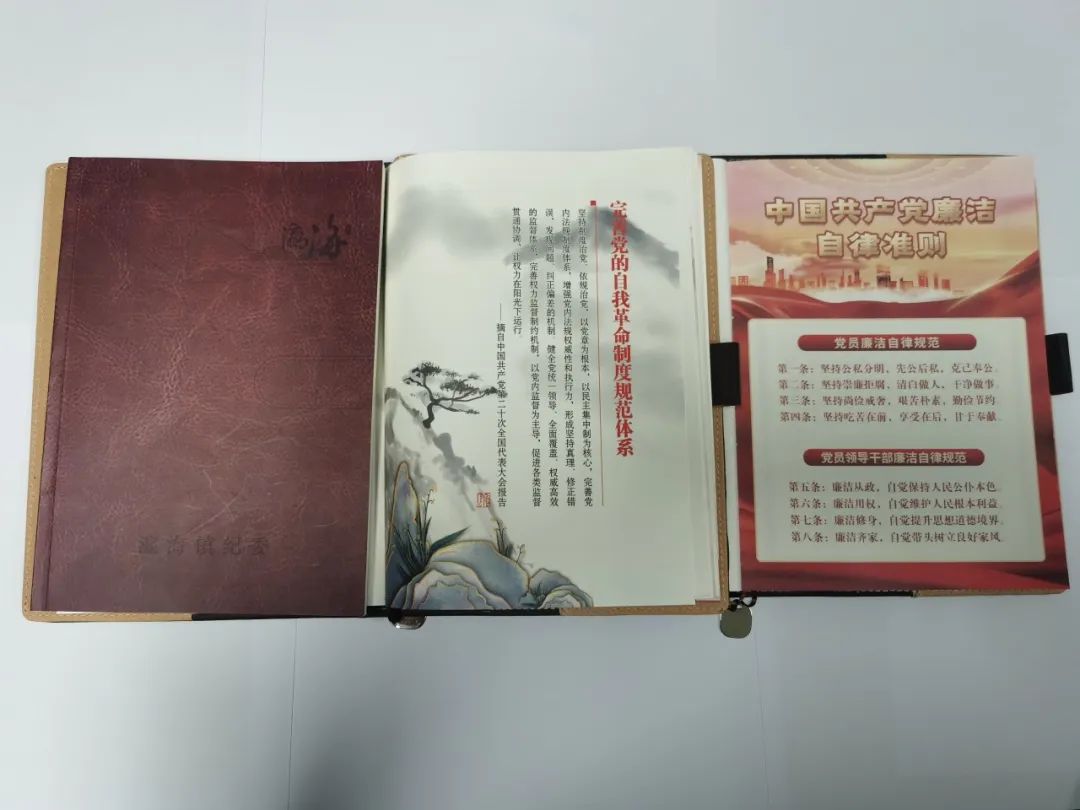 瀛海
瀛海镇纪委
完善党的自我革命制度规范体系
坚持制度治党、依规治党，以党章为根本，以民主集中制为核心，完善党
内法规制度体系，增强党内法规权威性和执行力，形成坚持真理、修正错
误，发现问题、纠正偏差的机制。健全党统一领导、全面覆盖、权威高效
的监督体系，完善权力监督制约机制，以党内监督为主导，促进各类监督
贯通协调，让权力在阳光下运行。
——摘自中国共产党第二十次全国代表大会报告
中国共产党廉洁
自律准则
党员廉洁自律规范
第一条：坚持公私分明，先公后私，克己奉公。
第二条：坚持崇廉拒腐，清白做人，干净做事。
第三条：坚持尚俭戒奢，艰苦朴素，勤俭节约。
第四条：坚持吃苦在前，享受在后，甘于奉献。
党员领导干部廉洁自律规范
第五条：廉洁从政，自觉保持人民公仆本色。
第六条：廉洁用权，自觉维护人民根本利益。
第七条：廉洁修身，自觉提升思想道德境界。
第八条：廉洁齐家，自觉带头树立良好家风。